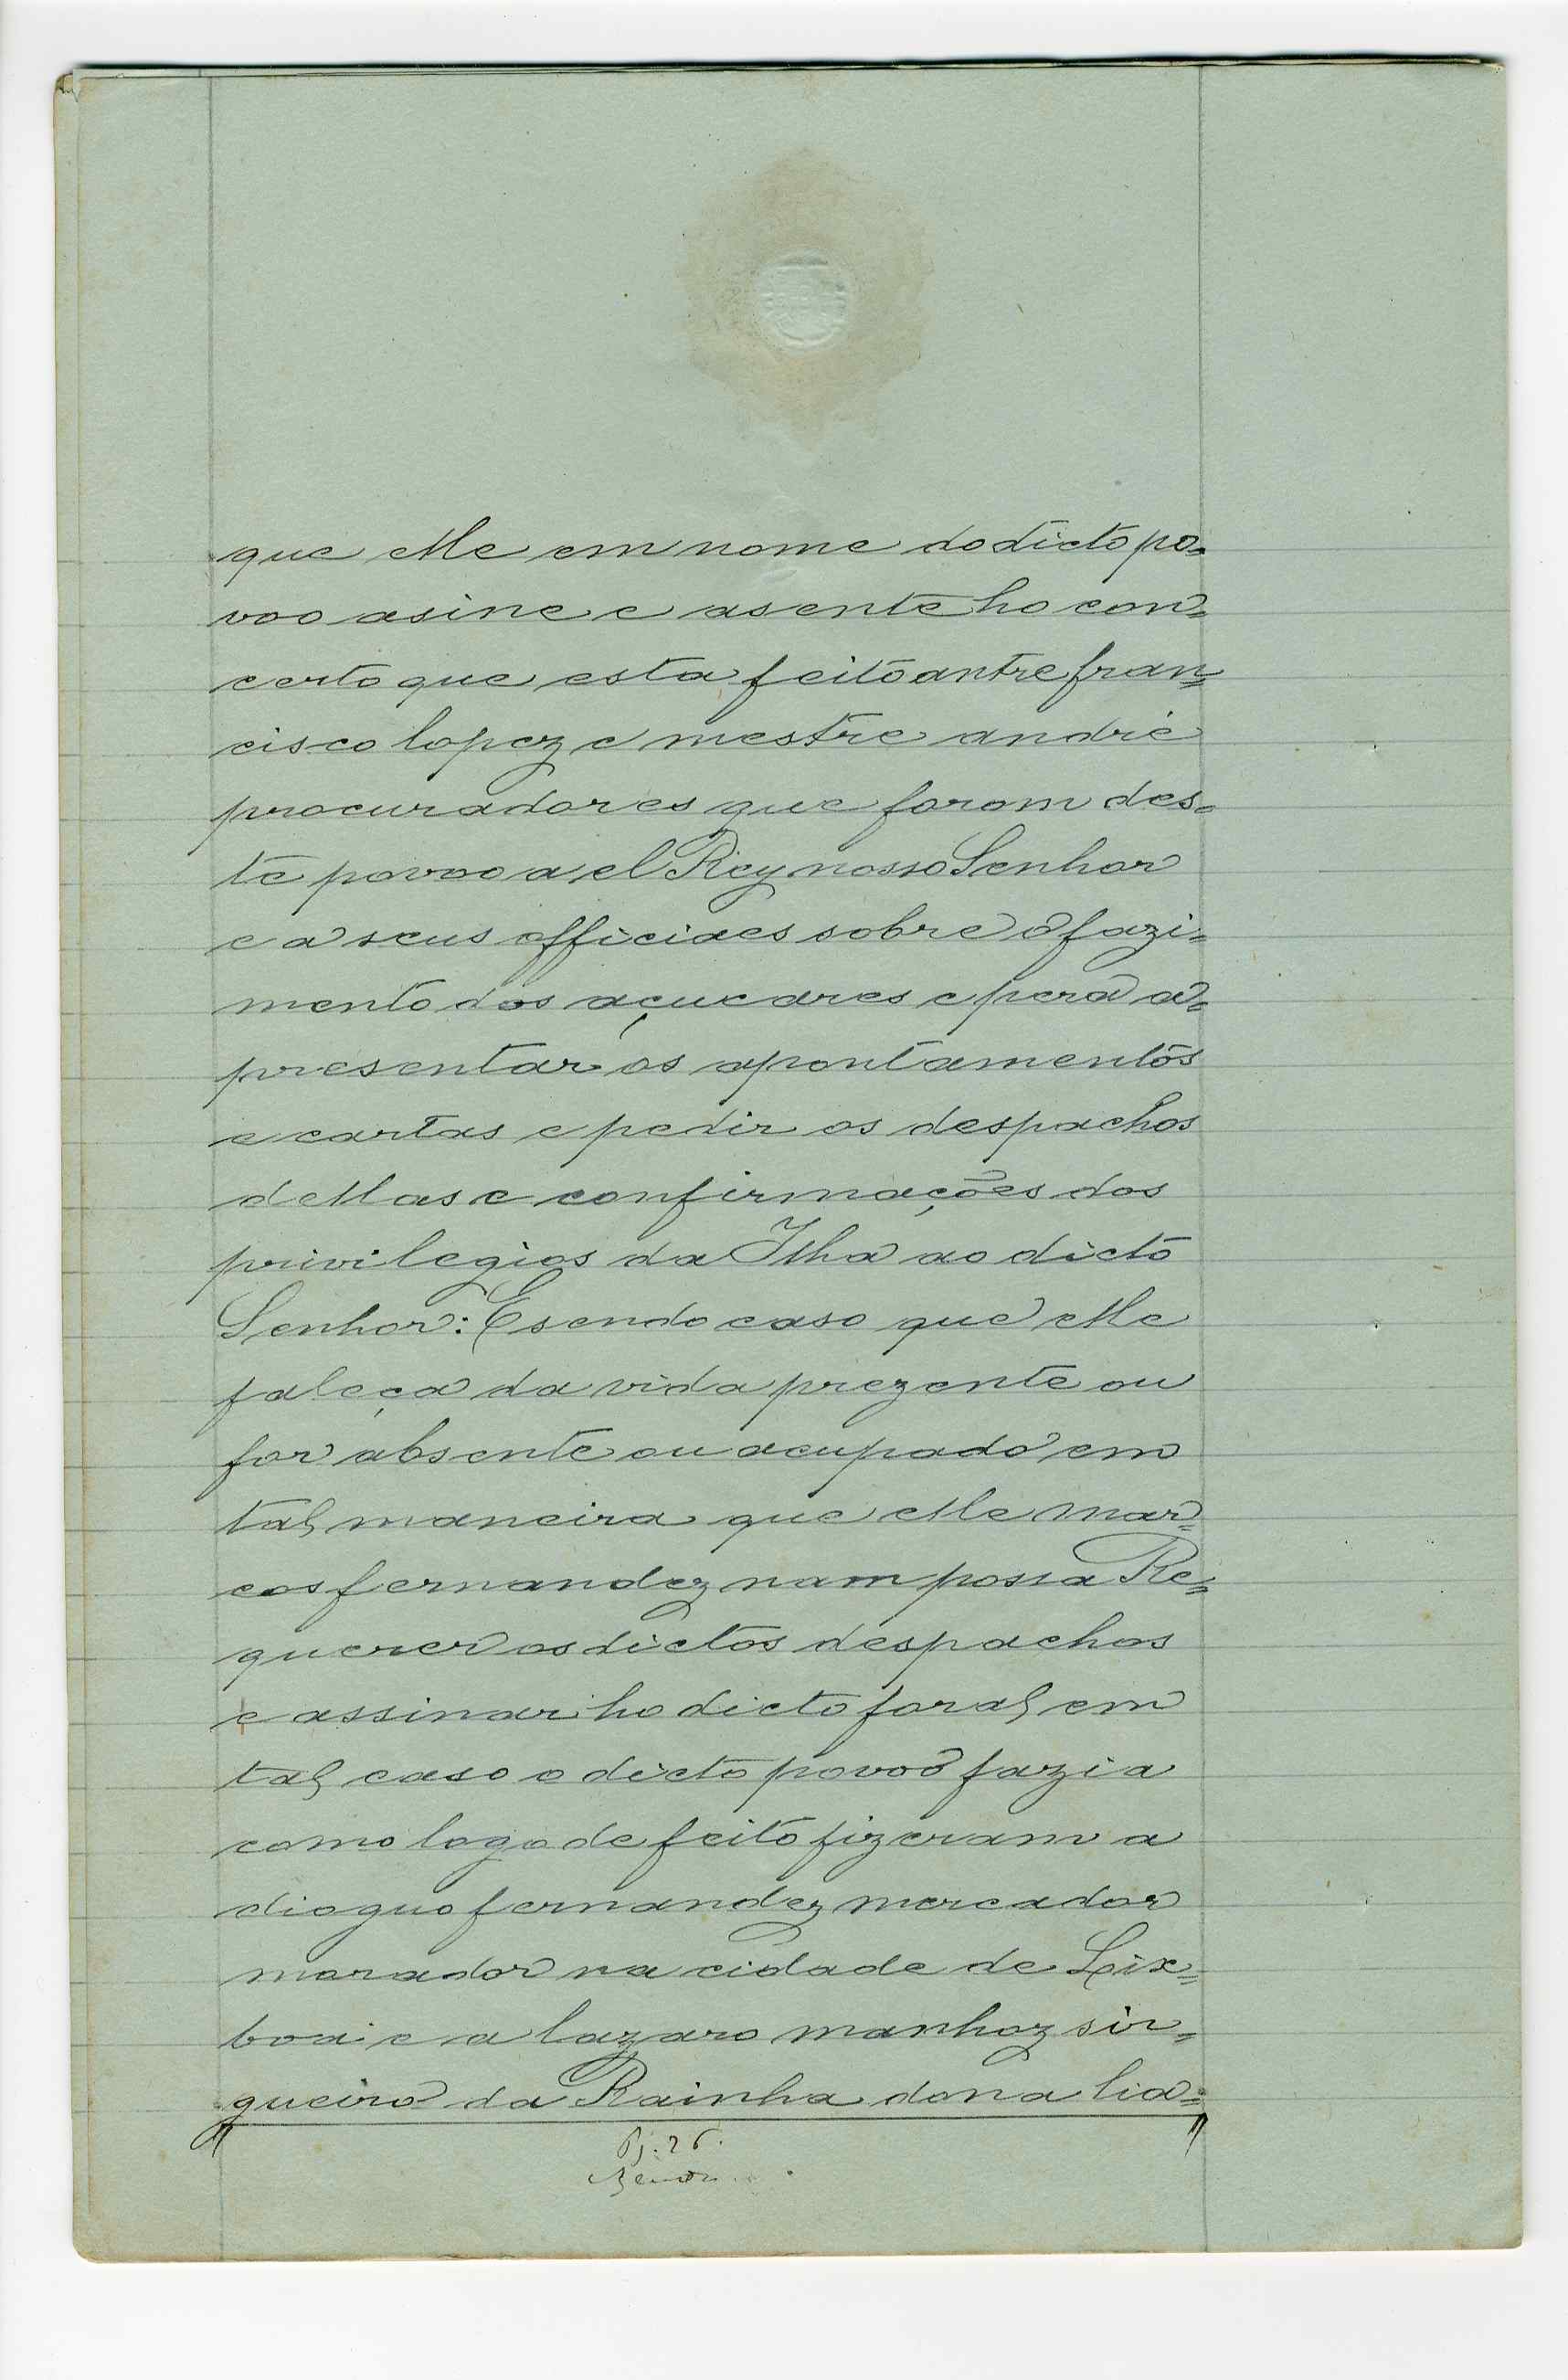 que elle em nome do dicto po=
voo asine e asente ho con=
certo que esta feito antre fran=
cisco lopez e mestre andré
procuradores que forom des=
te povoo a el Rey nosso Senhor
e a seus officiaes sobre o fazi=
mento dos açucares e pera a=
presentar os apontamentos
e cartas e pedir os despachos
dellas e confirmações dos
privilegios da Ilha ao dicto
Senhor: E sendo caso que elle
faleça da vida prezente ou
for absente ou acupado em
tal maneira que elle mar=
cos fernandez nam possa Re=
querer os dictos despachos
e assinar ho dicto foral em
tal caso o dicto povoo fazia
como logo de feito fizeram a
dioguo fernandez mercador
morador na cidade de Lix=
boa e a lazaro manhoz sir=
gueiro da Rainha dona lia=